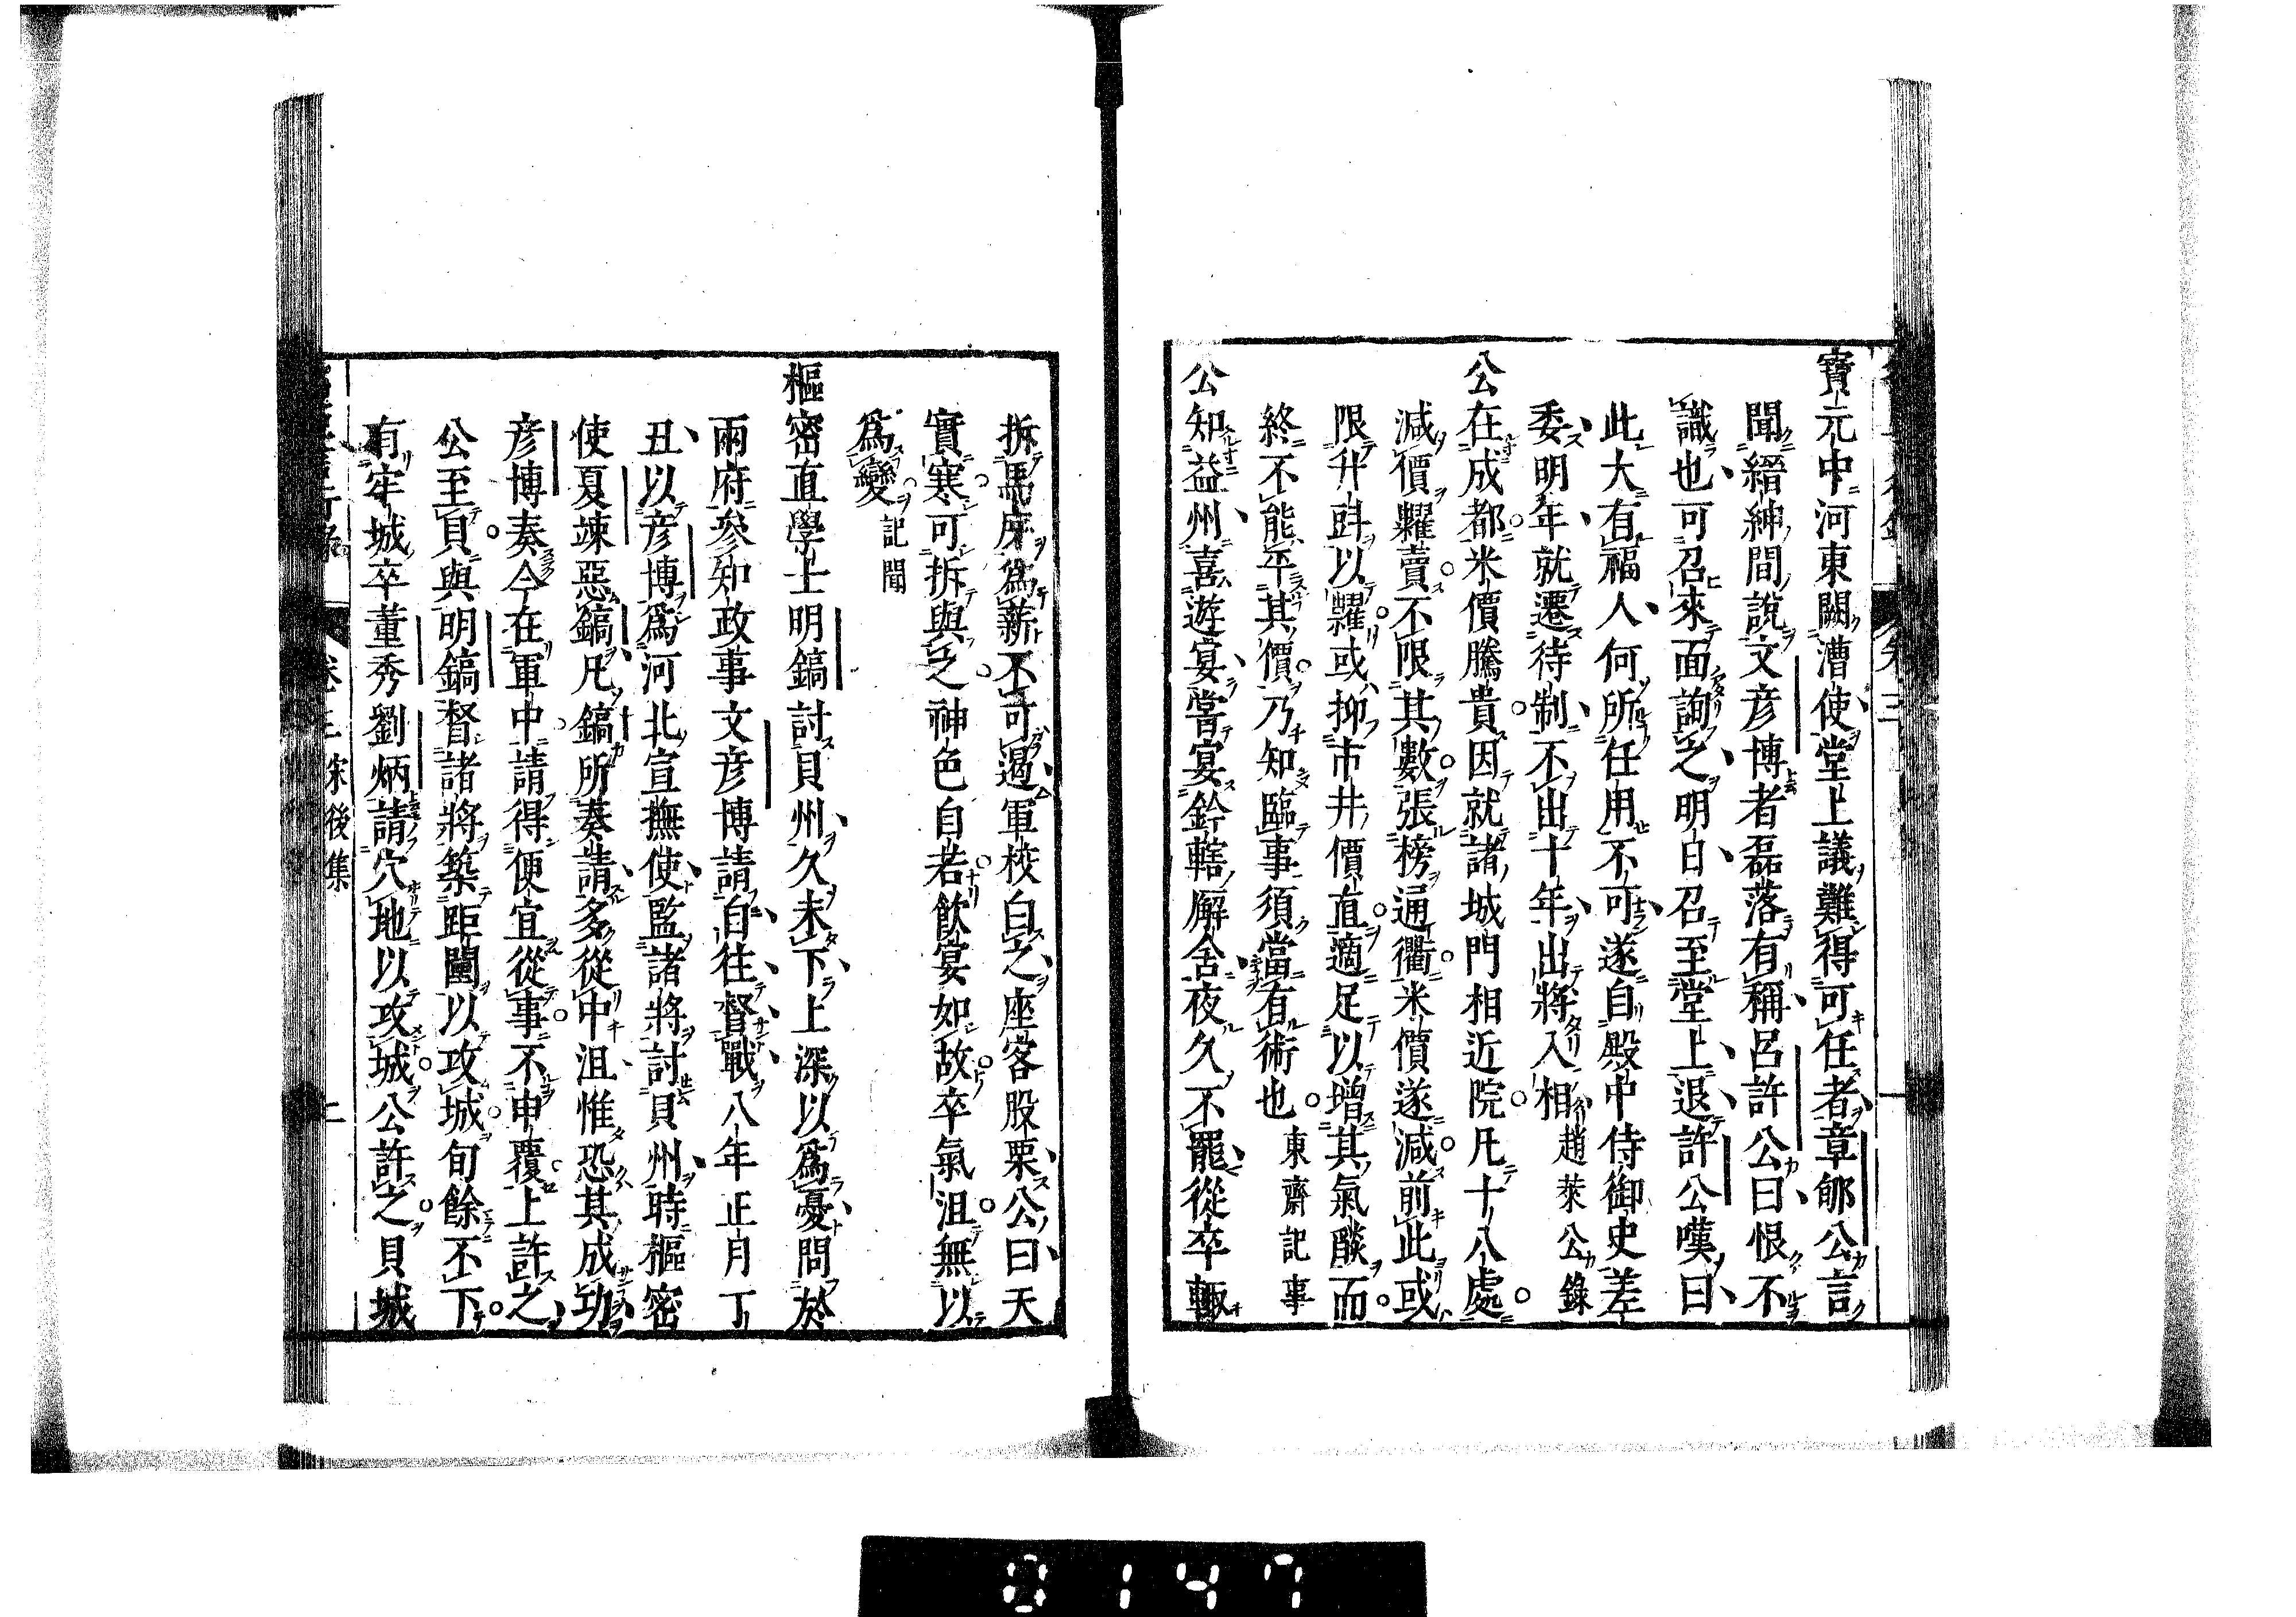 寶元中河東闕漕使堂上議難得可任者章郇公言
聞縉紳間說文彦博者磊落有稱呂許公曰恨不
識也可召來面詢之明日召至堂上退許公嘆曰
此大有福人何所任用不可遂自殿中侍御史差
委明年就遷待制不出十年出將入相趙萊公錄
公在成都米價騰貴因就諸城門相近院凡十八處
減價糶賣不限其數張榜通衢米價遂減前此或
限升㪷以糶或抑市井價直適足以增其氣燄而
終不能平其價乃知臨事須當有術也東齋記事
公知益州喜遊宴嘗宴鈐轄廨舍夜久不罷從卒輙
拆馬庌為薪不可遏軍校白之座客股栗公曰天
實寒可拆與之神色自若飲宴如故卒氣沮無以
為變記聞
樞密直學士明鎬討貝州久未下上深以為憂問於
兩府參知政事文彦博請自往督戰八年正月丁
丑以彦博為河北宣撫使監諸將討貝州時樞密
使夏竦惡鎬凡鎬所奏請多從中沮惟恐其成功
彦博奏今在軍中請得便宜從事不申覆上許之
公至貝與明鎬督諸將築距闉以攻城旬餘不下
有牢城卒董秀劉炳請穴地以攻城公許之貝城
卷三宋後集 二
0147